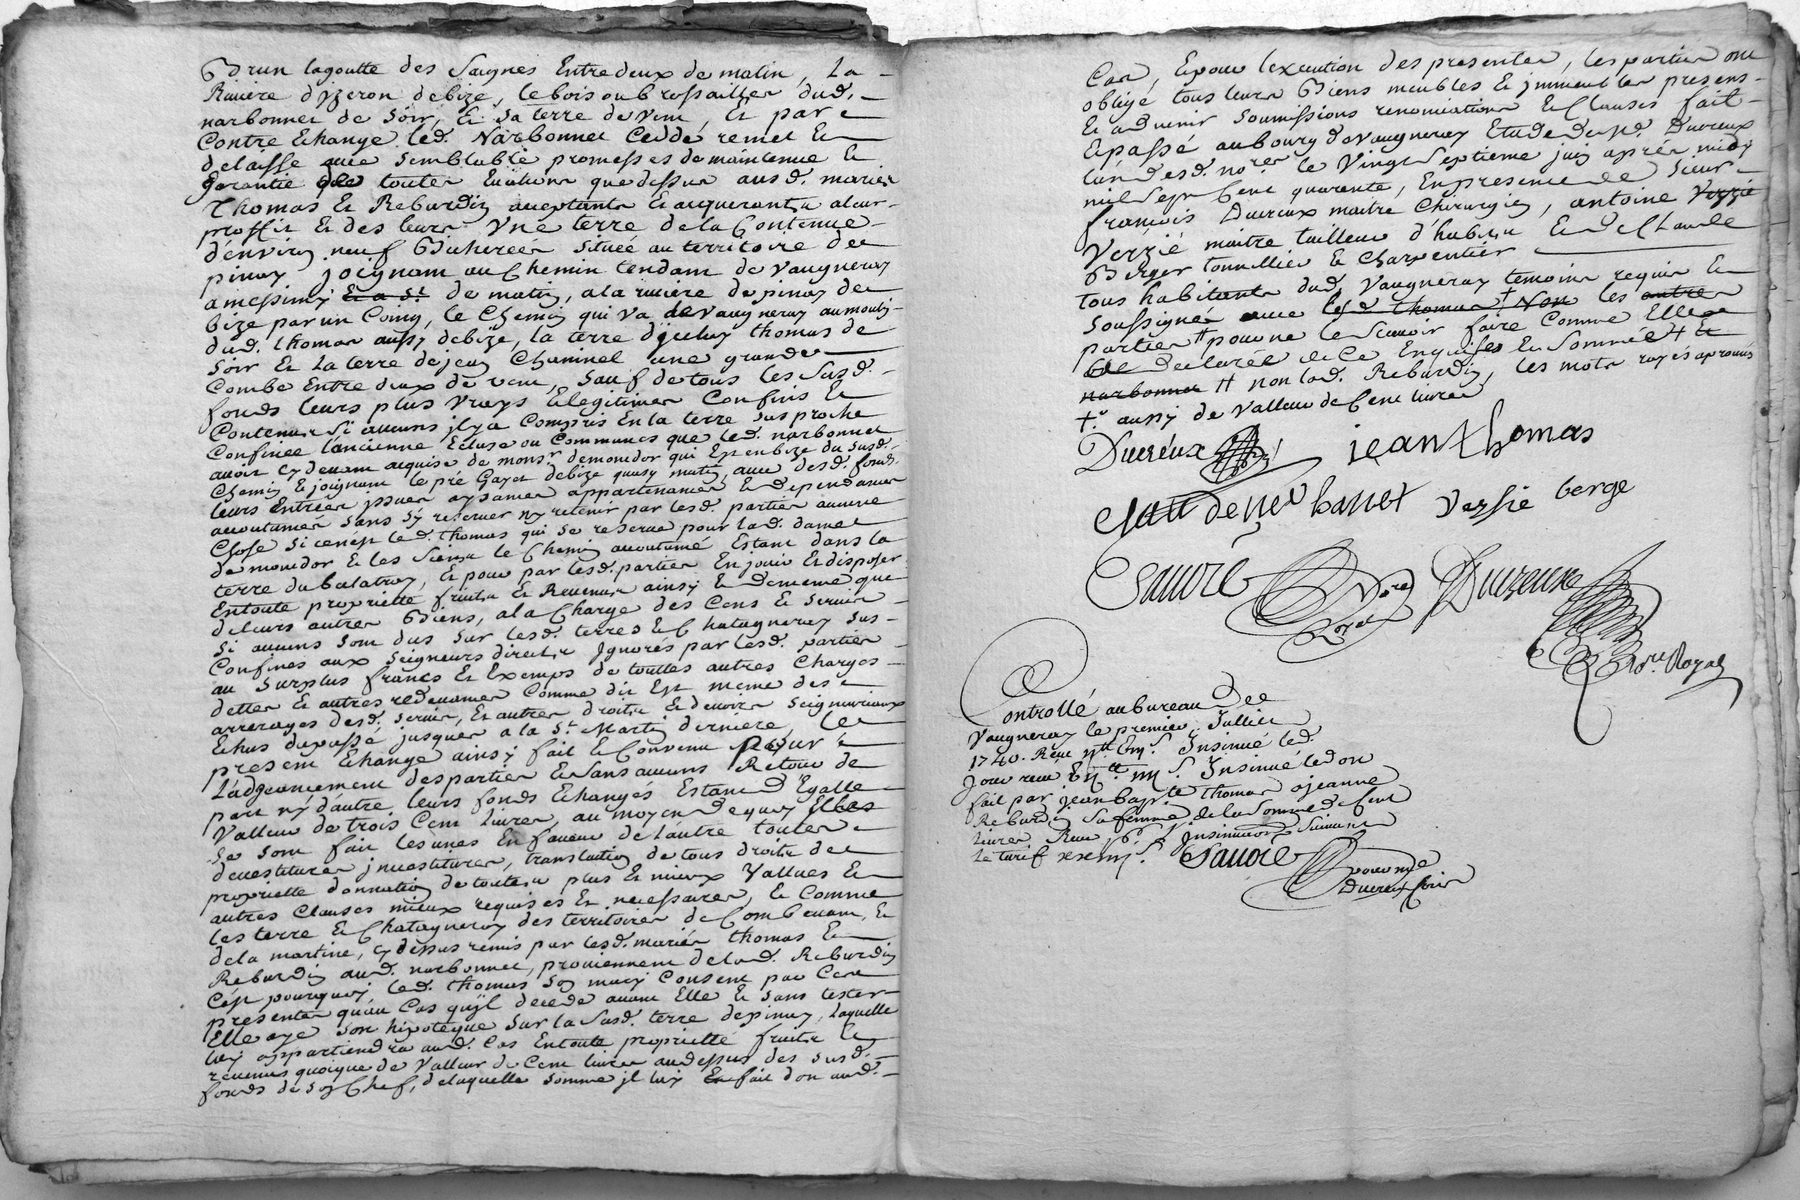 Et d'un lagoutte des Saignes Entredeux de matin, La
Riuiere d'yzeron debize, le bois ou brossailler dud.
narbonnet de Soir, Et Sa terre de vent, Et par
Contre Echange led. Narbonnet Cedde remet Et
delaisse auec Semblable promesses de maintenue Et
Garantie de touttes Euictions que dessus ausd. mariés
Thomas Et Reburdin acceptants Et acquerants a leur
proffit Et des leurs Une terre de la Contenue
d'enuiron neuf Bicherées Située au territoire de
pinay joignant au Chemin tendant de Vaugneray
a messimy Et a St. de matin, a la riuiere de pinay de
bize par un Coing, le Chemin qui Va de Vaugneray au moulin
dud. thomas aussy debize, la terre d' thomas de
Soir Et La terre de jean Chaninel une grande
Combe Entre deux de vent, Sauf de tous les Susd.
fonds leurs plus Vrays & legitimes Confins Et
Contenus Si aucuns il y a Compris En la terre Sus proche
Confinée l'ancienne Ecluse ou Communes que led. narbonnet
auoit Cy deuant acquise de monsr demonidor qui Est en bize du Susd.
Chemin Et joignant le pré Gayet debize quasy matin, auec desd. fonds
leurs Entrées issues aysances appartenances Et dependances
accoutumées Sans s'y reseruer n'y retenir par lesd. parties aucune
Chose Si ce n'est led. thomas qui Se reserue pour lad. dame
de monidor Et les Siens le Chemin accoutumé Estant dans la
terre du balatray, Et pour par lesd. parties En jouir Et disposer
En toute proprieté fruits Et Reuenus ainsy Et de meme que
de leurs autres Biens, a la Charge des Cens Et Seruis
Si aucuns Sont dus Sur lesd. terres Et Chataigneray Sus
Confinés aux Seigneurs directs Ignorés par lesd. parties
au Surplus francs Et Exemps de touttes autres Charges
dettes Et autres redeuances Comme dit Est meme des
arrerages desd. Seruis, Et autres droits Et deuoirs Seigneuriaux
Echus du passé jusques a la St. Martin derniere, le
present Echange ainsy fait Et Conuenu pour
L'adgeancement des parties Et Sans aucuns Retour de
part n'y d'autre leurs fonds Echangés Estant d'Egalle
Valleur de trois Cent Liures, au moyen de quoy Elles
Se Sont fait les unes En faueur de l'autre toutes
deuestitures jnuestitures, translation de tous droits de
proprieté donnation de toutes plus Et mieux Vallues Et
autres Clauses mieux requises Et necessaires, Et Comme
les terre Et Chataigneray des territoires de Combeuant, Et
de la martine, Cy dessus remis par lesd. mariés thomas Et
Reburdin aud. narbonnet, prouiennent de lad. Reburdin
C'est pourquoy led. thomas Son mary Consent par Ces
presentes qu'au Cas qu'il decede auant Elle Et Sans tester
Elle aye Son hipoteque Sur la Susd. terre de pinay, laquelle
luy appartiendra aud. Cas En toute proprieté fruits Et
reuenus quoique de Valleur de Cent liures au dessus des susd.
fonds de Son Chef, de laquelle Somme il luy En fait don aud.
Cas, Et pour l'execution des presentes, les parties ont
obligé tous leurs Biens meubles Et jmmeubles presens
Et aduenir Soumissions renonciations Et Clauses fait
Et passé au bourg de Vaugneray Etude de Me. Ducreux
l'un desd. nores le Vingt Septieme juin aprés midy
mil Sept Cent quarente, En presence de Sieur
francois Ducreux maitre Chirurgien, antoine Verzié
Verzié maitre tailleur d'habits Et de Claude
Berger tonnellier Et Charpentier
tous habitants dud. Vaugneray temoins requis Et
Soussignés auec led thomas † Non les autres
parties †† pour ne le Sçauoir faire Comme Elles
declaré de Ce Enquises Et Sommées †† Et
narbonnet †† non lad. Reburdin, les mots rayés aprouvés
†. aussy de Valleur de Cent liures
Ducreux jean thomas
Claude ner banet Verzie berge
Sauoie Nore Royal Ducreux
Nore. Royal
Controllé au bureau de
Vaugneray le premier Jullier
1740. Receu Insinué led.
Jour receu Insinué le don
fait par jean bapte thomas a jeanne
Reburdin Sa femme de la Somme de Cent
liures Receu Insinuation Suiuant
le tarif Sauoie
pour me
Ducreux